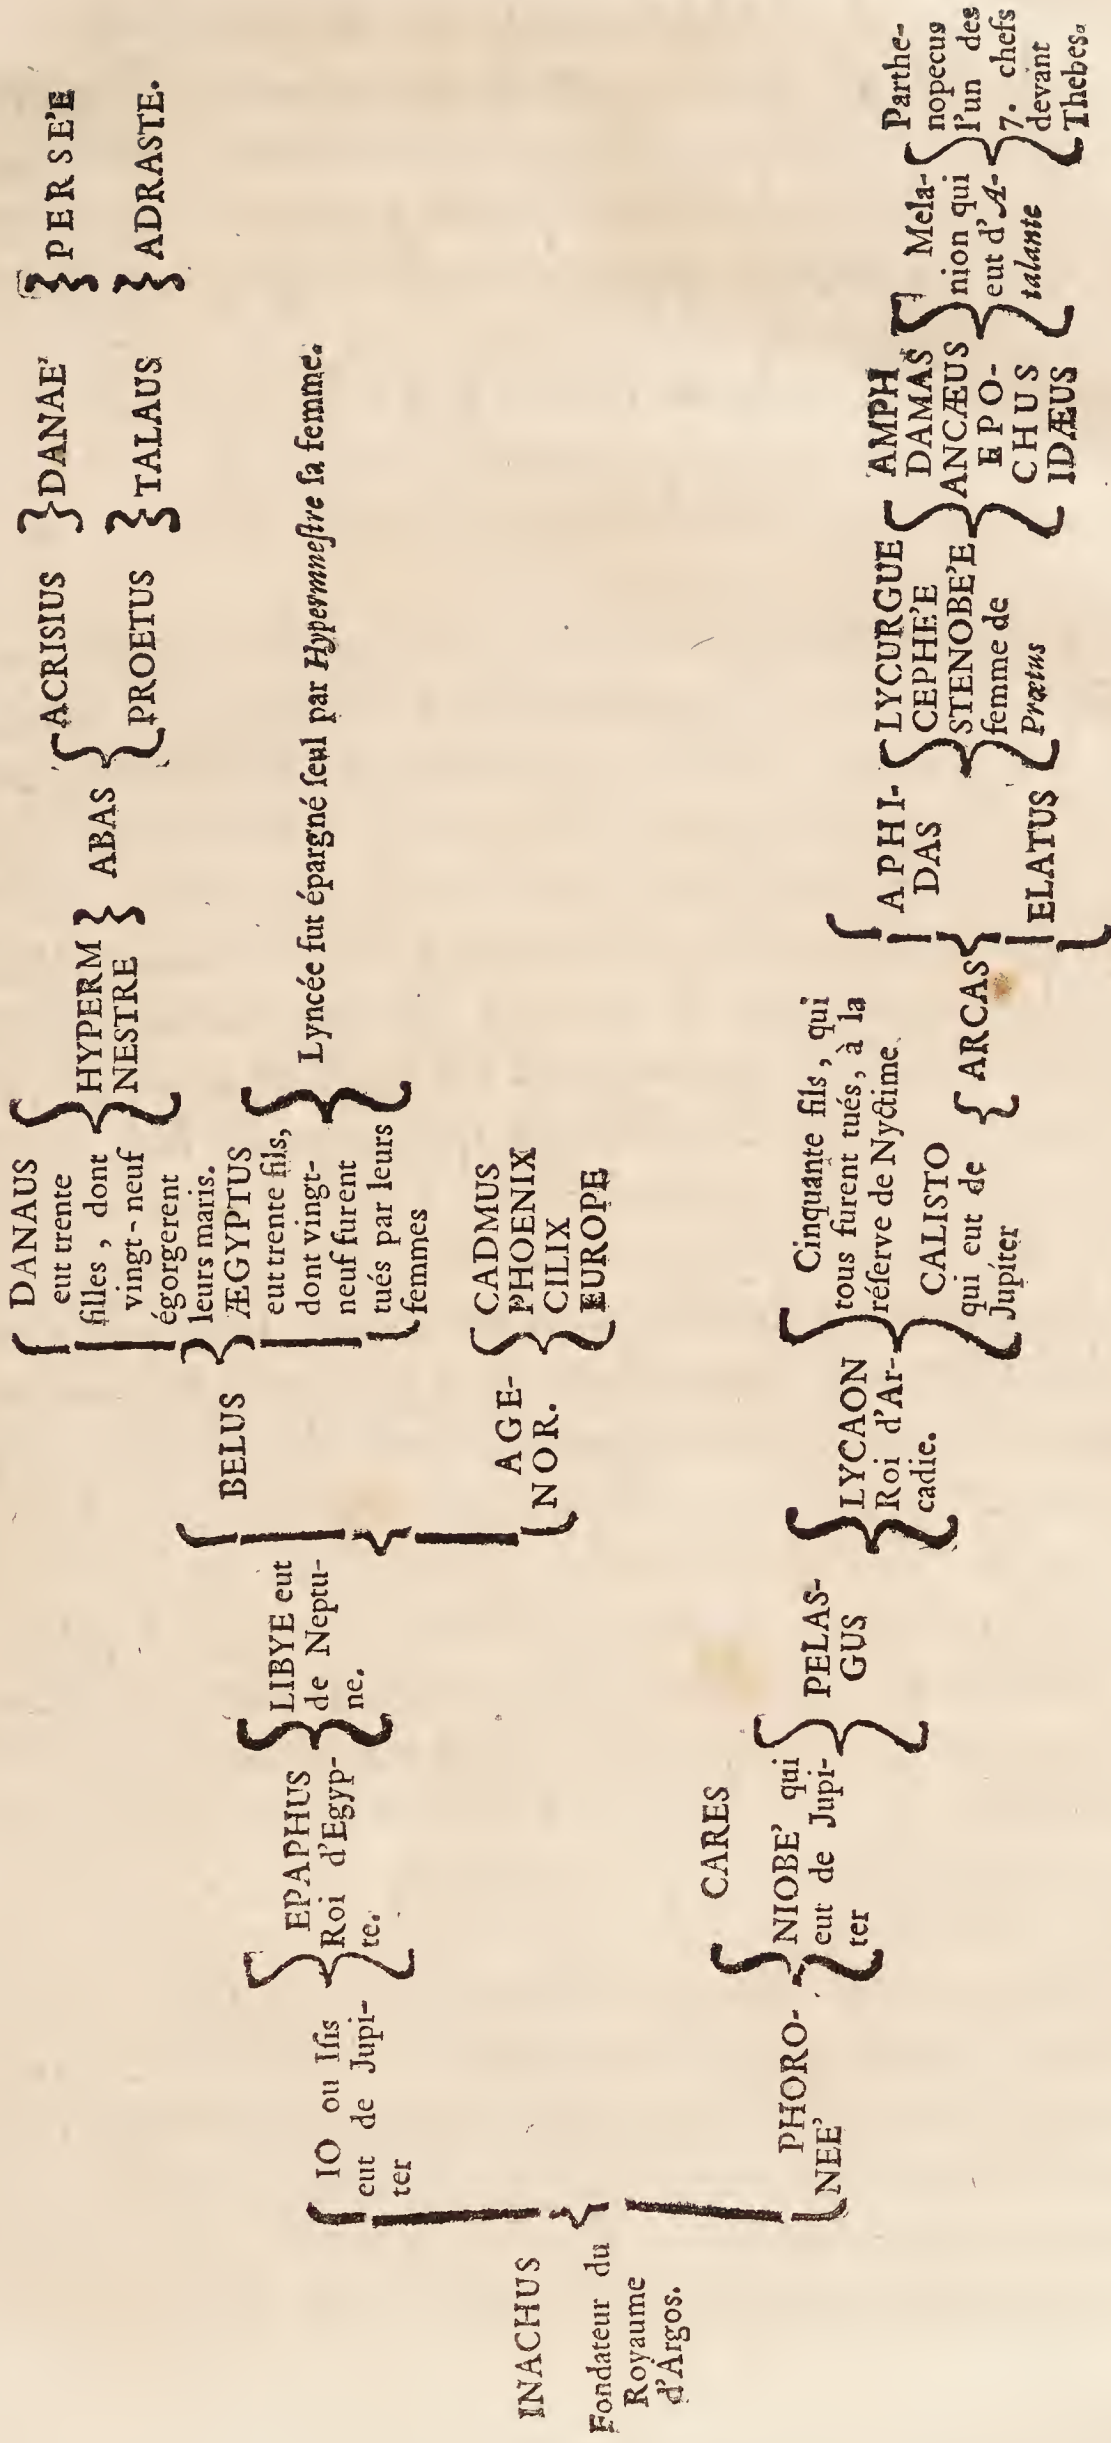 INACHUS
Fondateur du
Royaume
d'Argos.
IO ou Iſis
eut de Jupi-
ter
EPAPHUS
Roi d'Egyp-
te.
LIBYE eut
de Neptu-
ne.
BELUS
DANAUS
eut trente
filles, dont
vingt-neuf
égorgerent
leurs maris.
HYPERM
NESTRE
ABAS
ACRISIUS
DANAE'
PERSE'E
PROETUS
TALAUS
ADRASTE.
ÆGYPTUS
eut trente fils,
dont vingt-
neuf furent
tués par leurs
femmes
Lyncée fut épargné ſeul par Hypermneſtre ſa femme.
AGE-
NOR.
CADMUS
PHOENIX
CILIX
EUROPE
PHORO-
NEE'
CARES
NIOBE' qui
eut de Jupi-
ter
PELAS-
GUS
LYCAON
Roi d'Ar-
cadie.
Cinquante fils, qui
tous furent tués, à la
réſerve de Nyctime.
CALISTO
qui eut de
Jupiter
ARCAS
APHI-
DAS
ELATUS
LYCURGUE
CEPHE'E
STENOBE'E
femme de
Prætus
AMPH
DAMAS
ANCÆUS
EPO-
CHUS
IDÆUS
Mela-
nion qui
eut d'A-
talante
Parthe-
nopecus
l'un des
7. chefs
devant
Thebes.